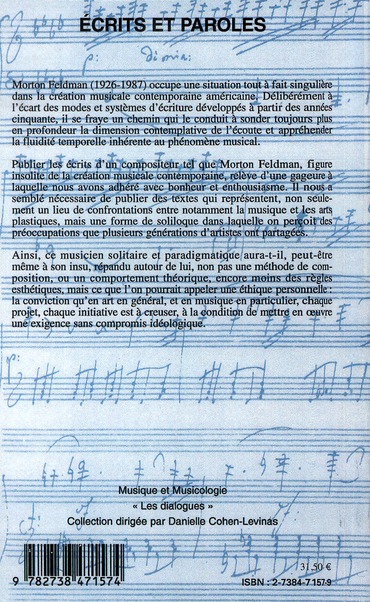 ÉCRITS ET PAROLES
p:
dimin:
Morton Feldman (1926-1987) occupe une situation tout à fait singulière
dans la création musicale contemporaine américaine. Délibérément à
l'écart des modes et systèmes d'écriture développés à partir des années
cinquante, il se fraye un chemin qui le conduit à sonder toujours plus
en profondeur la dimension contemplative de l'écoute et appréhender
la fluidité temporelle inhérente au phénomène musical.
Publier les écrits d'un compositeur tel que Morton Feldman, figure
insolite de la création musicale contemporaine, relève d'une gageure à
laquelle nous avons adhéré avec bonheur et enthousiasme. Il nous a
semblé nécessaire de publier des textes qui représentent, non seule-
ment un lieu de confrontations entre notamment la musique et les arts
plastiques, mais une forme de soliloque dans laquelle on perçoit des
préoccupations que plusieurs générations d'artistes ont partagées.
Ainsi, ce musicien solitaire et paradigmatique aura-t-il, peut-être
même à son insu, répandu autour de lui, non pas une méthode de com-
position, ou un comportement théorique, encore moins des règles
esthétiques, mais ce que l'on pourrait appeler une éthique personnelle :
la conviction qu'en art en général, et en musique en particulier, chaque
projet, chaque initiative est à creuser, à la condition de mettre en œuvre
une exigence sans compromis idéologique.
p:
Musique et Musicologie
« Les dialogues »
Collection dirigée par Danielle Cohen-Levinas
31,50 €
9 782738 471574
ISBN : 2-7384-7157-9